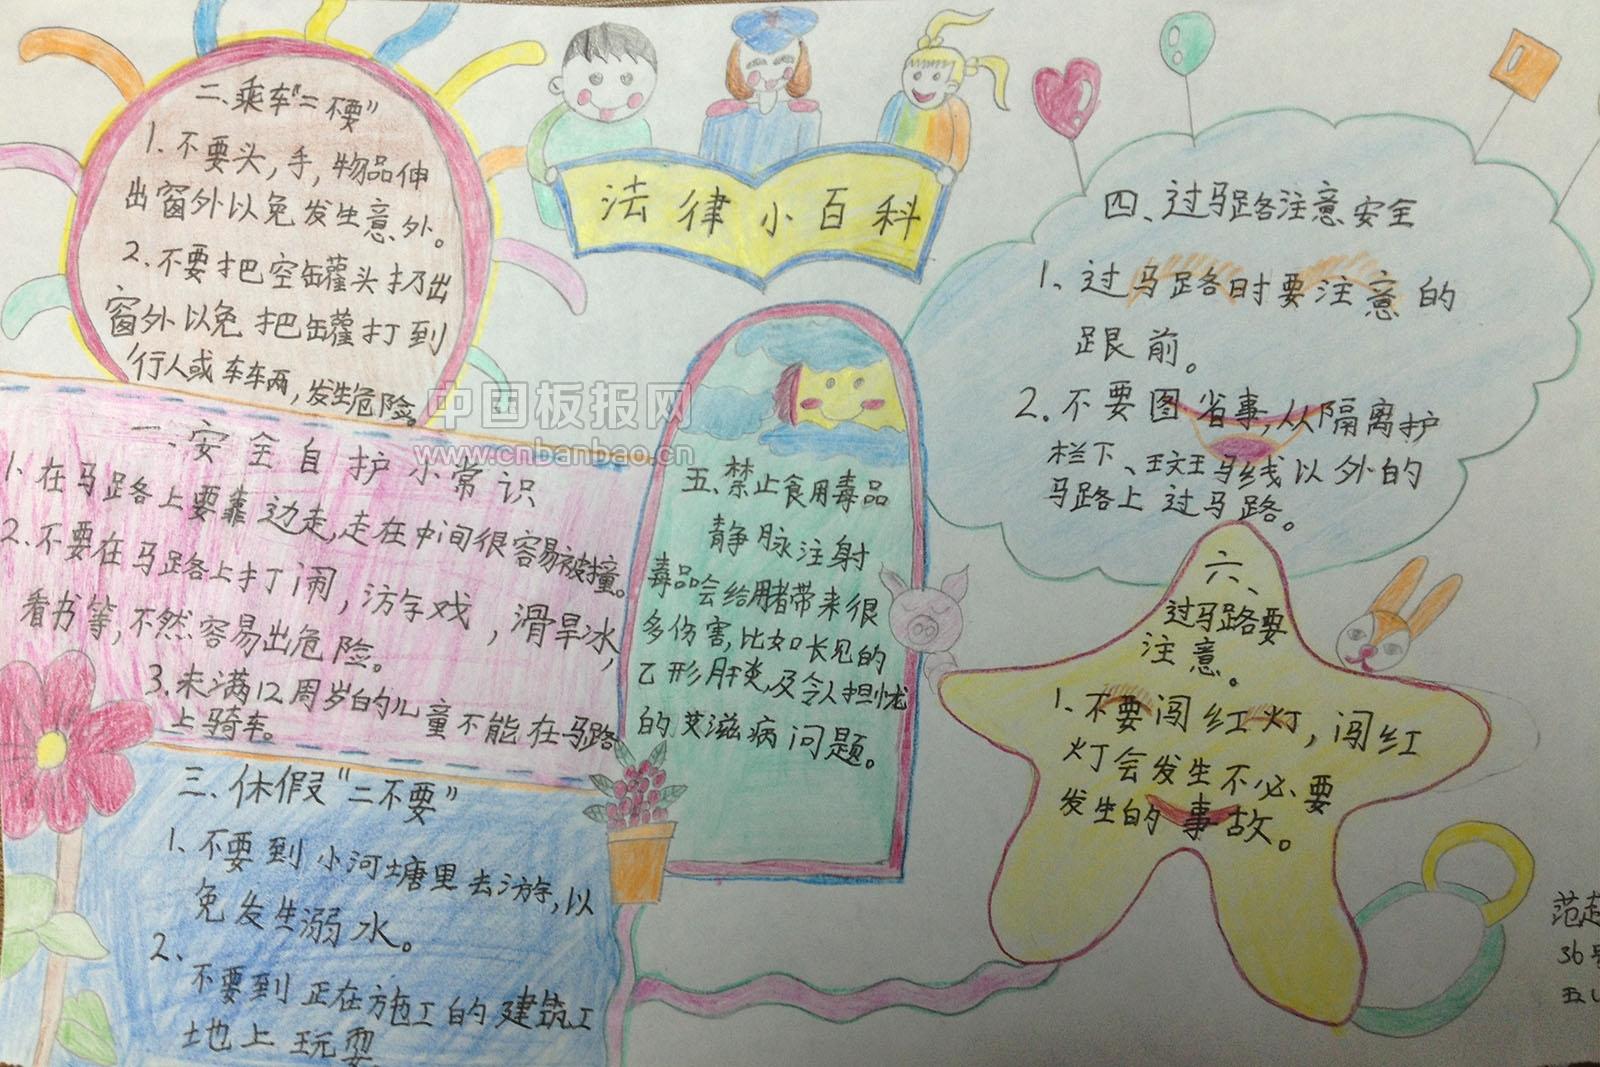 法律小百科
二、乘车“二不要”
1.不要头,手,物品伸
出窗外以免发生意外。
2.不要把空罐头扔出
窗外以免把罐打到
行人或车车两,发生危险。
中国板报网
www.cnbanbao.cn
一、安全自护小常识
1.在马路上要靠边走,走在中间很容易被撞。
2.不要在马路上打闹,游字戏,滑旱冰,
看书等,不然容易出危险。
3.未满12周岁的儿童不能在马路
上骑车。
三、休假“二不要”
1、不要到小河塘里去游字,以
免发生溺水。
2、
不要到正在施工的建筑工
地上玩耍
五、禁止食用毒品
静脉注射
毒品会给带来很
多伤害,比如长见的
乙形肝炎,及令人担忧
的艾滋病问题。
四、过马路注意安全
1、过马路时要注意的
跟前。
2.不要图省事,从隔离护
栏下、马线以外的
马路上过马路。
六、
过马路要
注意。
1.不要闯红灯,闯红
灯会发生不必要
发生的事故。
范
36号
五